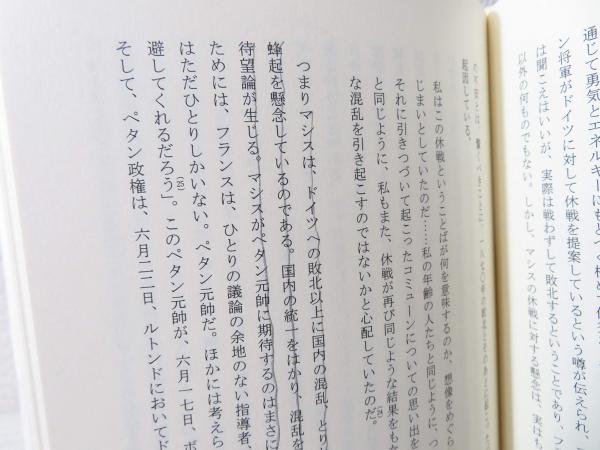 通じて勇気とエネルギーにもとづく
ン将軍がドイツに対して休戦を提案しているという噂が伝えられ、
は聞こえはいいが、実際は戦わずして敗北するということであり、フ
以外の何ものでもない。しかし、マシスの休戦に対する懸念は、実はも
べきことに、一八七〇年の
起因している。
私はこの休戦ということばが何を意味するのか、想像をめぐら
じまいとしていたのだ……私の年齢の人たちと同じように、つ
それに引きつづいて起こったコミューンについての思い出を
と同じように、私もまた、休戦が再び同じような結果をも
な混乱を引き起こすのではないかと心配していたのだ。
つまりマシスは、ドイツへの敗北以上に国内の混乱、とり
蜂起を懸念しているのである。国内の統一をはかり、混乱を
待望論が生じる。マシスがペタン元帥に期待するのはまさに
ためには、フランスは、ひとりの議論の余地のない指導者、
はただひとりしかいない。ペタン元帥だ。ほかには考えら
避してくれるだろう」。このペタン元帥が、六月一七日、ボ
そして、ペタン政権は、六月二二日、ルトンドにおいてド